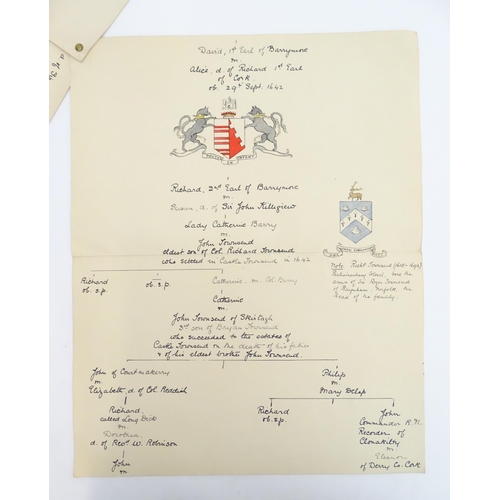 David, 1st Earl of Barrymore
m.
Alice, d. of Richard 1st Earl
of Cork.
ob. 29th Sept. 1642
Richard, 2nd Earl of Barrymore
m.
Susan, d. of Sir John Killigrew
Lady Catherine Barry
m.
John Townsend
eldest son of Col. Richard Townsend
who settled in Castle Townsend in 1642
Richard
ob. s.p.
ob. s.p.
Catherine. m. Col. Barry
Catherine
m.
John Townsend of Skirtagh
3rd son of Bryan Townsend
who succeeded to the estates of
Castle Townsend on the death of his father
& of his eldest brother John Townsend.
Note Richd Townsend
the
arms of Sir Roger Townsend
of Raynham, Norfolk, the
Head of the family.
John of Courtmacsherry
m.
Elizabeth, d. of Col. Reddish
Richard,
called Long Dick
m.
Dorothea,
d. of Revd W. Robinson
John
m.
Philip
m.
Mary Delap
Richard
ob. s.p.
John
Commander R.N.
Recorder of
Clonakilty
m.
Eleanor
of Derry Co. Cork